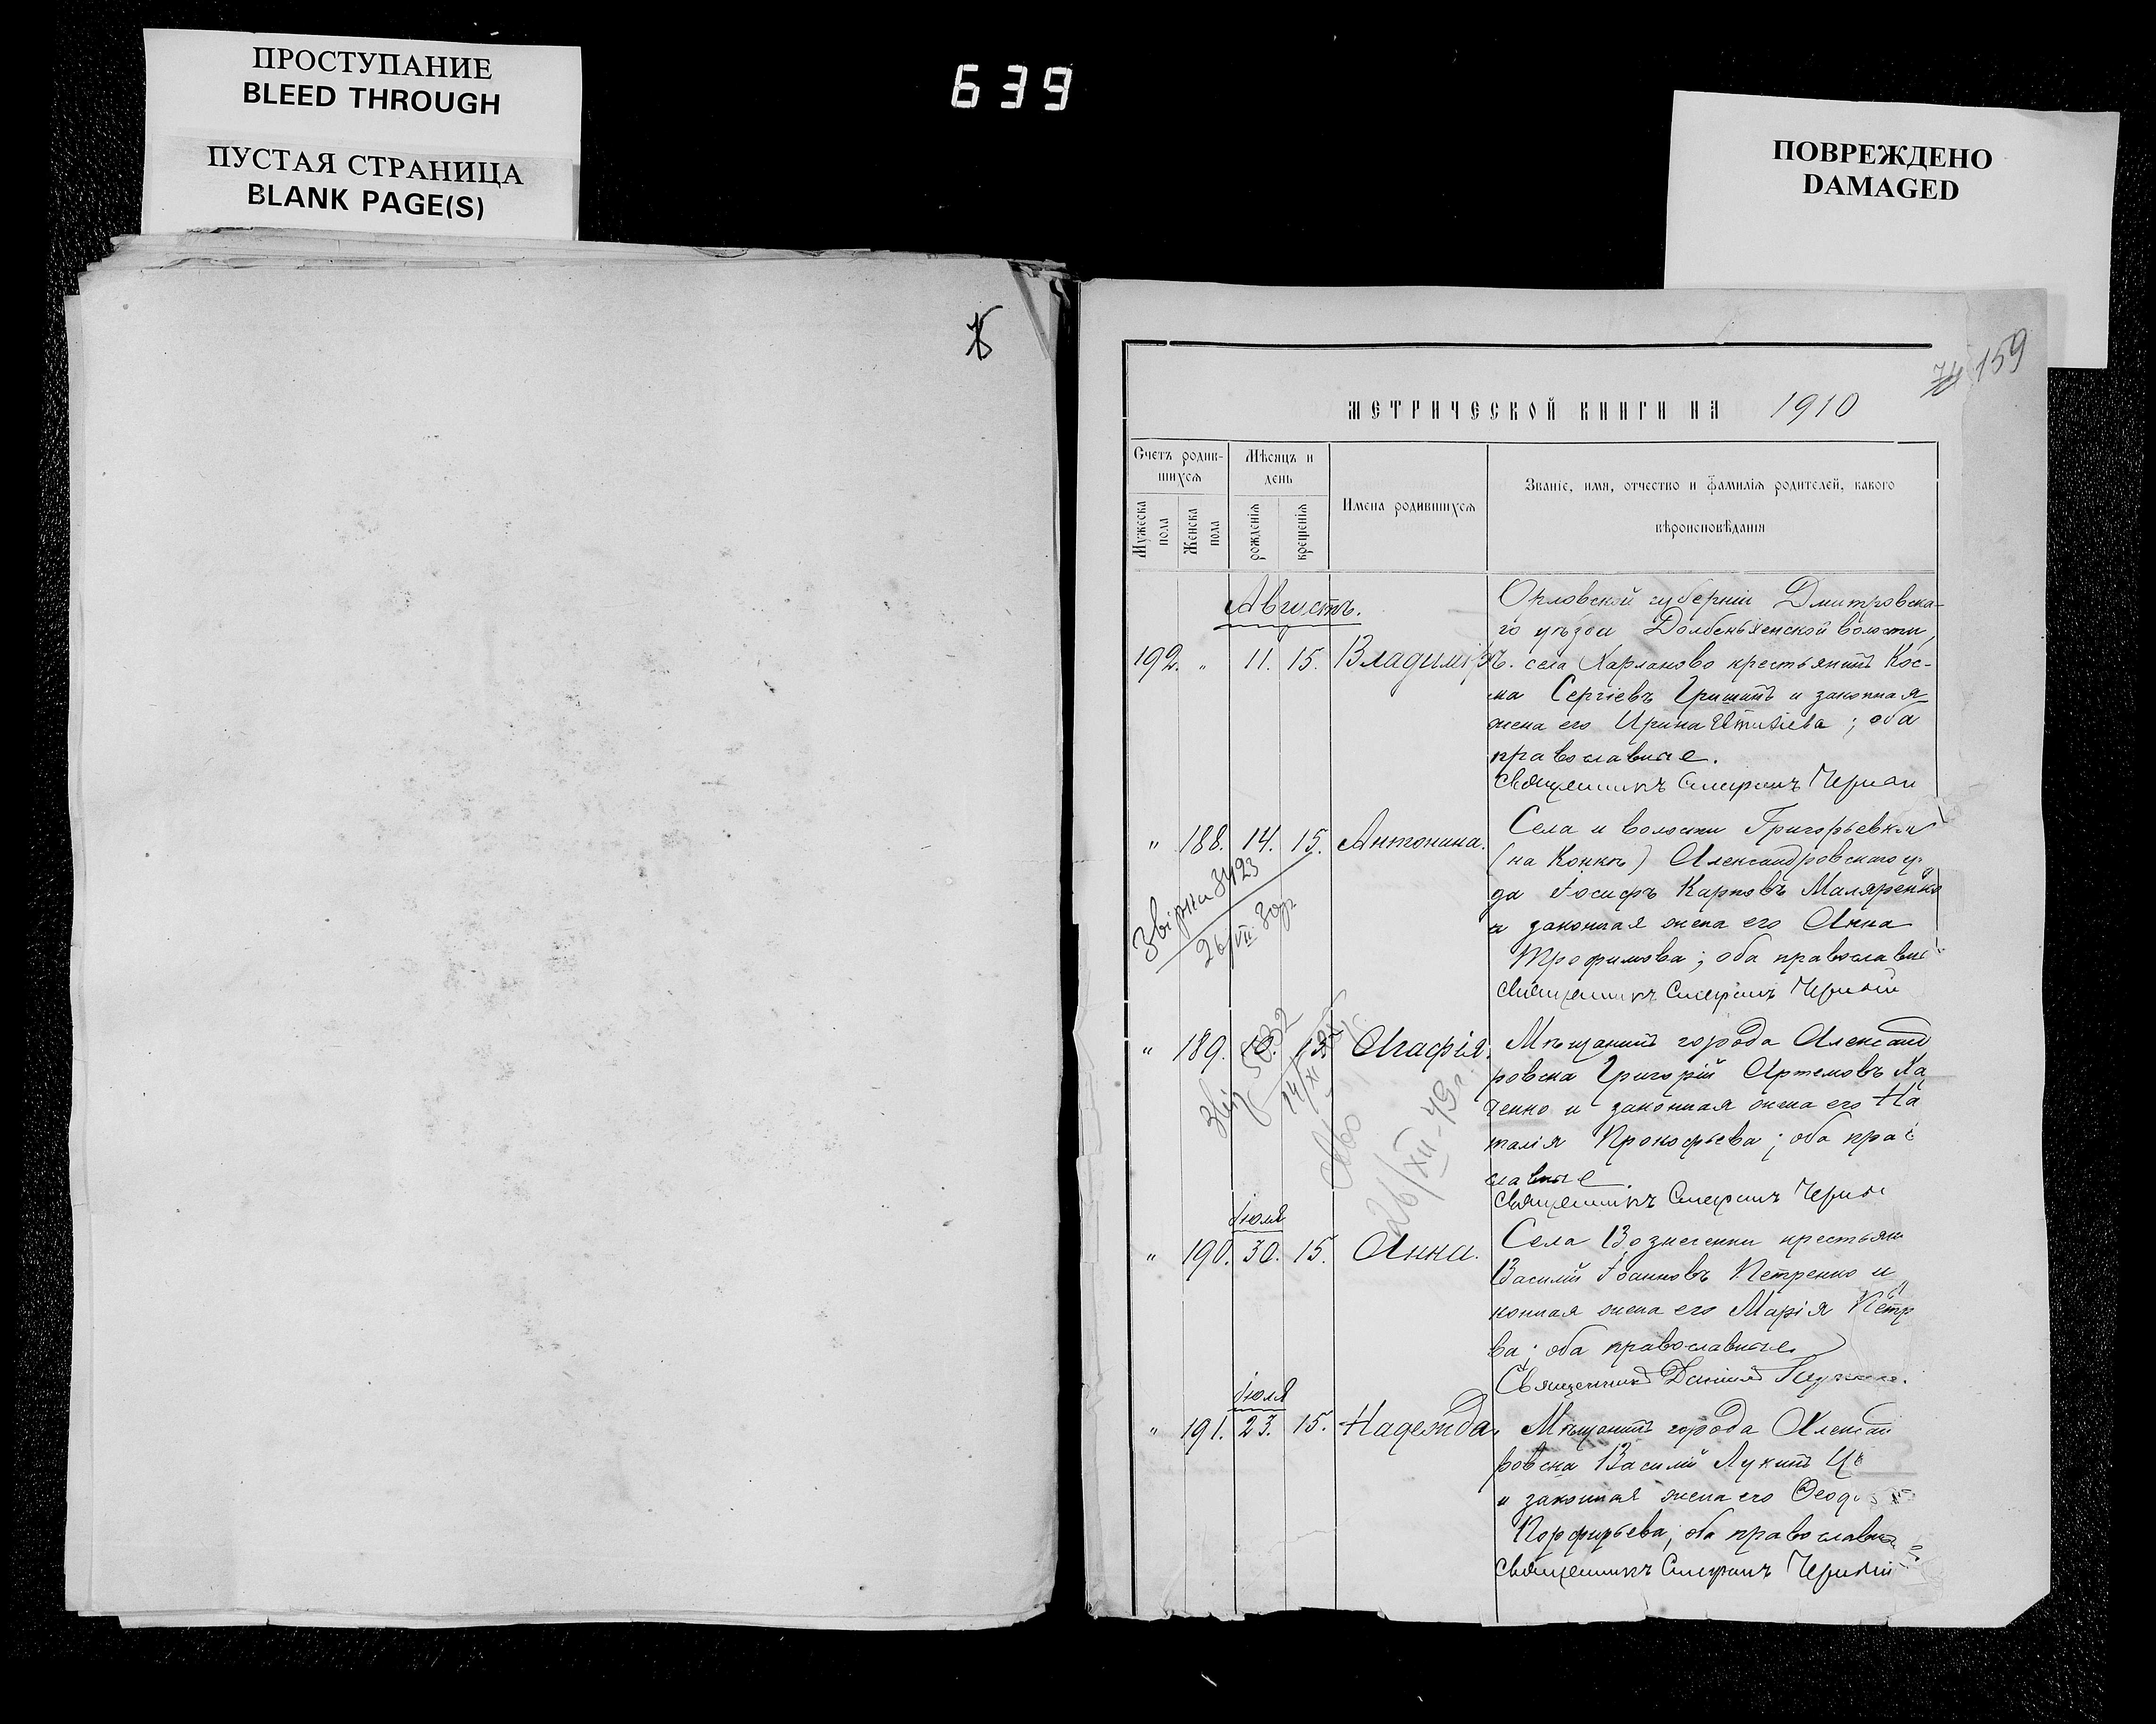 ПРОСТУПАНИЕ
BLEED THROUGH
ПУСТАЯ СТРАНИЦА
BLANK PAGE(S)
639
ПОВРЕЖДЕНО
DAMAGED
159
МЕТРИЧЕСКОЙ КНИГИ НА 1910
Счетъ родив-
шихся
Мѣсяцъ и
день
Мужеска
пола
Женска
пола
рожденія
крещенія
Имена родившихся
Званіе, имя, отчество и фамилія родителей, какого
вѣроисповѣданія
Августъ.
192. " 11. 15. Владиміръ.
Орловской губерніи Дмитровска-
го уѣзда Долбенькенской волости,
села Харланово крестьянинъ Кос-
ма Сергіевъ Гришинъ и законная
жена его Ирина; оба
православные.
Священникъ Стефанъ Черный
" 188. 14. 15. Антонина.
Села и волости Григорьевки
(на Конкѣ) Александровскаго
да Іосифъ Карповъ Маляренко
и законная жена его Анна
Трофимова; оба православн
Священникъ Стефанъ Черный
Звірка 3423
26/VII 30р
" 189. Агафія.
Мѣщанинъ города Александ
ровска Григорій Артемовъ
ченко и законная жена его На
талія Прокофьева; оба прав
славные
Священникъ Стефанъ Черны
Звір 5032
14/XI
26/XII-49г.
Іюля
" 190. 30. 15. Анна.
Села Вознесенки крестьян
Василій Іоанновъ Петренко и
конная жена его Марія Петр
ва; оба православные
Священникъ Даніилъ
Іюля
" 191. 23. 15. Надежда.
Мѣщанинъ города Алексан
ровска Василій Лукинъ
и законная жена его
Порфирьева; оба православн
Священникъ Стефанъ Черный